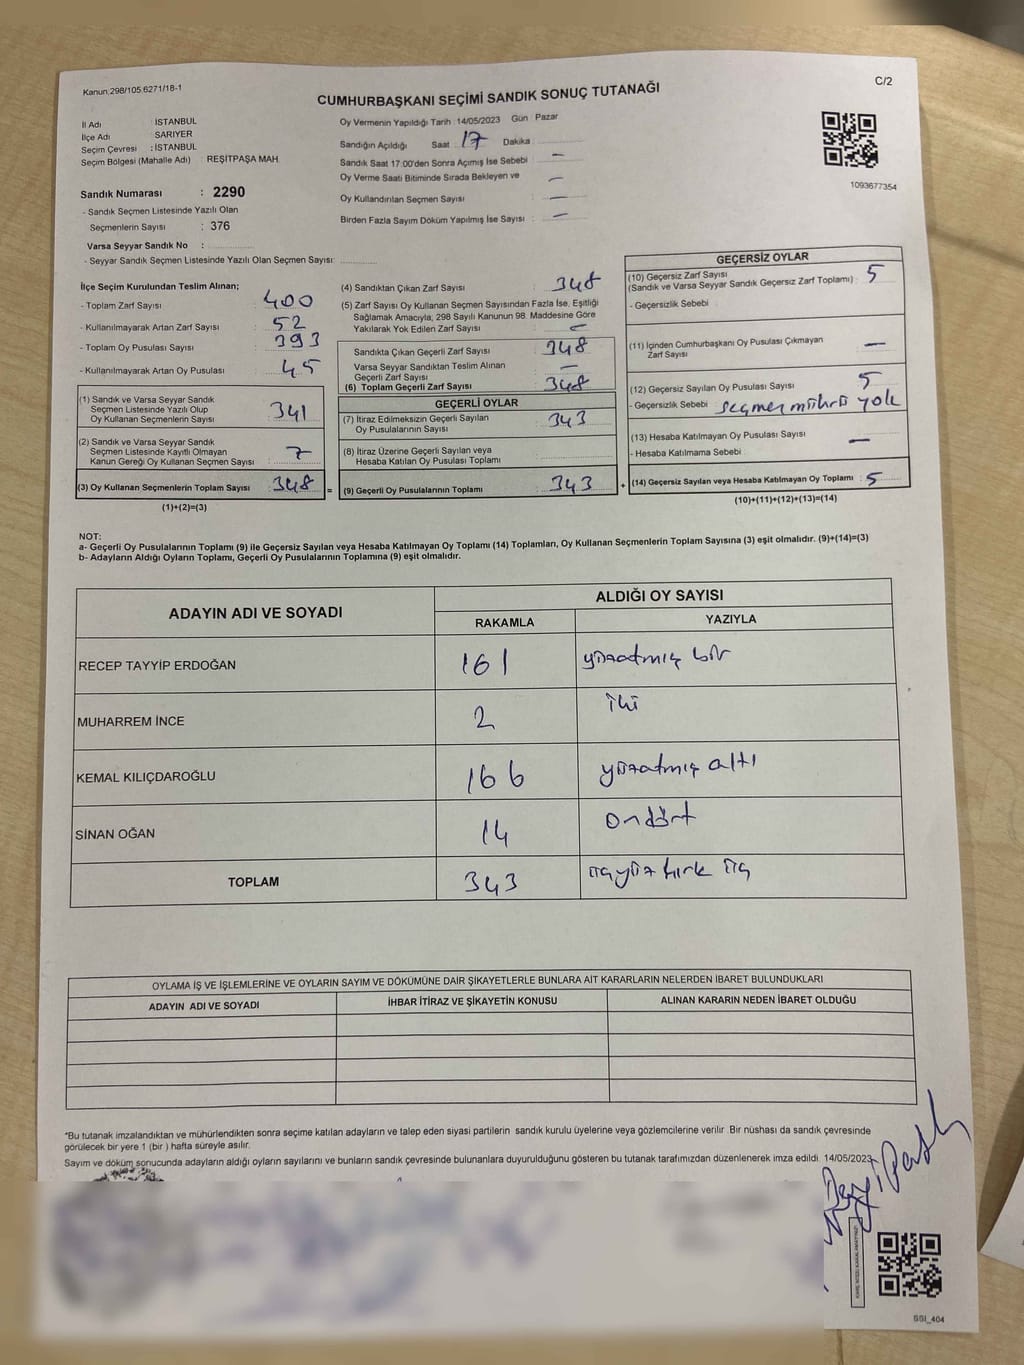 Kanun:298/105.6271/18-1
C/2
CUMHURBAŞKANI SEÇİMİ SANDIK SONUÇ TUTANAĞI
İl Adı : İSTANBUL
İlçe Adı SARIYER
Seçim Çevresi : İSTANBUL
Seçim Bölgesi (Mahalle Adı) : REŞİTPAŞA MAH.
Sandık Numarası : 2290
- Sandık Seçmen Listesinde Yazılı Olan
Seçmenlerin Sayısı : 376
Varsa Seyyar Sandık No :
- Seyyar Sandık Seçmen Listesinde Yazılı Olan Seçmen Sayısı:
Oy Vermenin Yapıldığı Tarih :14/05/2023 Gün : Pazar
Sandığın Açıldığı Saat : 17 Dakika :
Sandık Saat 17:00'den Sonra Açımış İse Sebebi : —
Oy Verme Saati Bitiminde Sırada Bekleyen ve —
Oy Kullandırılan Seçmen Sayısı : —
Birden Fazla Sayım Döküm Yapılmış İse Sayısı : —
1093677354
İlçe Seçim Kurulundan Teslim Alınan;
- Toplam Zarf Sayısı : 400
- Kullanılmayarak Artan Zarf Sayısı : 52
- Toplam Oy Pusulası Sayısı : 393
- Kullanılmayarak Artan Oy Pusulası : 45
(1) Sandık ve Varsa Seyyar Sandık
Seçmen Listesinde Yazılı Olup
Oy Kullanan Seçmenlerin Sayısı : 341
(2) Sandık ve Varsa Seyyar Sandık
Seçmen Listesinde Kayıtlı Olmayan
Kanun Gereği Oy Kullanan Seçmen Sayısı : 7
(3) Oy Kullanan Seçmenlerin Toplam Sayısı : 348 =
(1)+(2)=(3)
(4) Sandıktan Çıkan Zarf Sayısı : 348
(5) Zarf Sayısı Oy Kullanan Seçmen Sayısından Fazla İse, Eşitliği
Sağlamak Amacıyla; 298 Sayılı Kanunun 98. Maddesine Göre
Yakılarak Yok Edilen Zarf Sayısı : —
Sandıkta Çıkan Geçerli Zarf Sayısı : 348
Varsa Seyyar Sandıktan Teslim Alınan
Geçerli Zarf Sayısı : —
(6) Toplam Geçerli Zarf Sayısı : 348
GEÇERLİ OYLAR
(7) İtiraz Edilmeksizin Geçerli Sayılan
Oy Pusulalarının Sayısı : 343
(8) İtiraz Üzerine Geçerli Sayılan veya
Hesaba Katılan Oy Pusulası Toplamı :
(9) Geçerli Oy Pusulalarının Toplamı : 343 +
GEÇERSİZ OYLAR
(10) Geçersiz Zarf Sayısı
(Sandık ve Varsa Seyyar Sandık Geçersiz Zarf Toplamı) : 5
- Geçersizlik Sebebi :
(11) İçinden Cumhurbaşkanı Oy Pusulası Çıkmayan
Zarf Sayısı : —
(12) Geçersiz Sayılan Oy Pusulası Sayısı : 5
- Geçersizlik Sebebi : seçmen mührü yok
(13) Hesaba Katılmayan Oy Pusulası Sayısı : —
- Hesaba Katılmama Sebebi :
(14) Geçersiz Sayılan veya Hesaba Katılmayan Oy Toplamı : 5
(10)+(11)+(12)+(13)=(14)
NOT:
a- Geçerli Oy Pusulalarının Toplamı (9) ile Geçersiz Sayılan veya Hesaba Katılmayan Oy Toplamı (14) Toplamları, Oy Kullanan Seçmenlerin Toplam Sayısına (3) eşit olmalıdır. (9)+(14)=(3)
b- Adayların Aldığı Oyların Toplamı, Geçerli Oy Pusulalarının Toplamına (9) eşit olmalıdır.
ADAYIN ADI VE SOYADI
ALDIĞI OY SAYISI
RAKAMLA YAZIYLA
RECEP TAYYİP ERDOĞAN 161 yüzatmış bir
MUHARREM İNCE 2 iki
KEMAL KILIÇDAROĞLU 166 yüzatmış altı
SİNAN OĞAN 14 ondört
TOPLAM 343 üçyüz kırk üç
OYLAMA İŞ VE İŞLEMLERİNE VE OYLARIN SAYIM VE DÖKÜMÜNE DAİR ŞİKAYETLERLE BUNLARA AİT KARARLARIN NELERDEN İBARET BULUNDUKLARI
ADAYIN ADI VE SOYADI İHBAR İTİRAZ VE ŞİKAYETİN KONUSU ALINAN KARARIN NEDEN İBARET OLDUĞU
*Bu tutanak imzalandıktan ve mühürlendikten sonra seçime katılan adayların ve talep eden siyasi partilerin sandık kurulu üyelerine veya gözlemcilerine verilir. Bir nüshası da sandık çevresinde
görülecek bir yere 1 (bir ) hafta süreyle asılır.
Sayım ve döküm sonucunda adayların aldığı oyların sayılarını ve bunların sandık çevresinde bulunanlara duyurulduğunu gösteren bu tutanak tarafımızdan düzenlenerek imza edildi. 14/05/2023